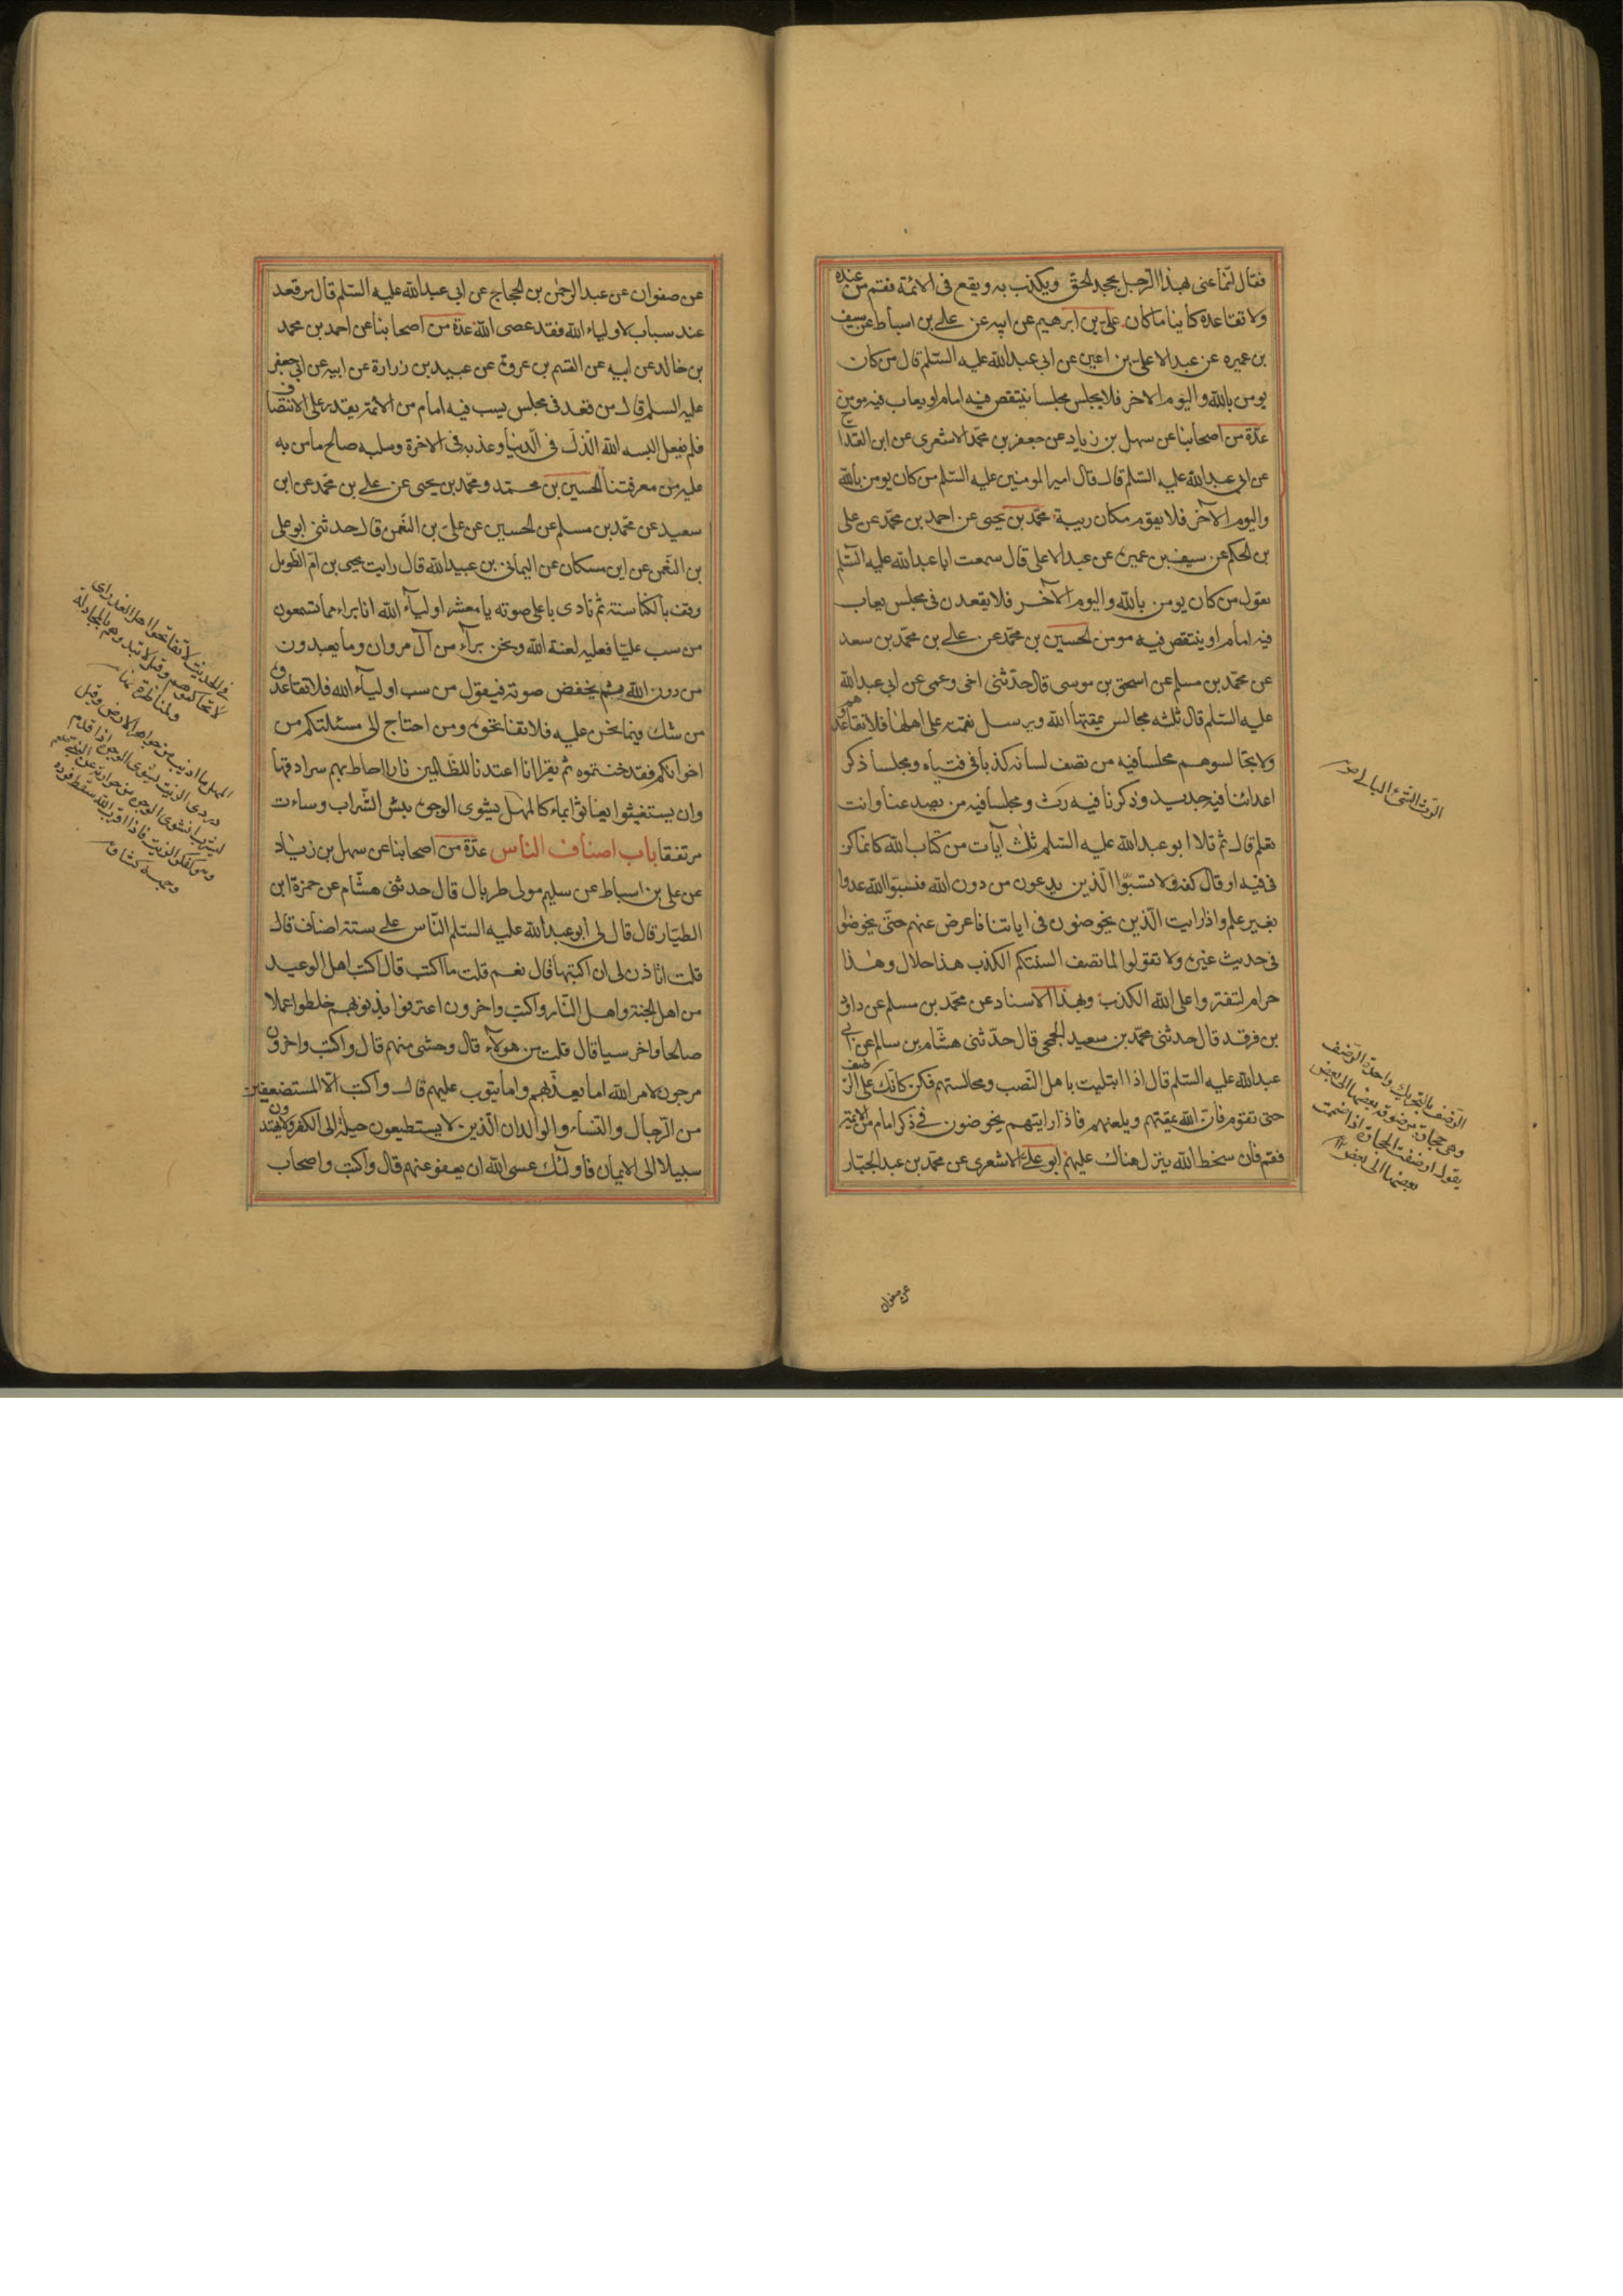 فقال انما عنى بهذا الرجل يجحد الحق ويكذب به ويقع فى الائمة فقم من عنده
ولا تقاعده كاينا ما كان على بن ابرهيم عن ابيه عن على بن اسباط عن سيف
بن عميره عن عبد الاعلى بن اعين عن ابى عبد الله عليه السلم قال من كان
يومن بالله واليوم الاخر فلا يجلس مجلسا ينتقص فيه امام او يعاب فيه مومن
عدّة من اصحابنا عن سهل بن زياد عن جعفر بن محمد الاشعرى عن ابن القداح
عن ابى عبد الله عليه السلم قال قال امير المومنين عليه السلم من كان يومن بالله
واليوم الآخر فلا يقوم مكان ريبة محمد بن يحيى عن احمد بن محمد عن على
بن الحكم عن سيف بن عميرة عن عبد الاعلى قال سمعت ابا عبد الله عليه السلم
يقول من كان يومن بالله واليوم الآخر فلا يقعدن فى مجلس يعاب
فيه امام او ينتقص فيه مومن الحسين بن محمد عن على بن محمد بن سعد
عن محمد بن مسلم عن اسحق بن موسى قال حدّثنى اخى وعمى عن ابى عبد الله
عليه السلم قال ثلثه مجالس يمقتها الله ويرسل نقمته على اهلها فلا تقاعدوهم
ولا تجالسوهم مجلسا فيه من تصف لسانه كذبا فى فتياه ومجلسا ذكر
اعدائنا فيه جديد وذكرنا فيه رث ومجلسا فيه من يصد عنا وانت
تعلم قال ثم تلا ابو عبد الله عليه السلم ثلث آيات من كتاب الله كانما كن
فى فيه او قال كفه ولا تسبّوا الّذين يدعون من دون الله فيسبّوا الله عدوا
بغير علم واذا رايت الّذين يخوضون فى اياتنا فاعرض عنهم حتّى يخوضوا
فى حديث غيره ولا تقولوا لما تصف السنتكم الكذب هذا حلال وهذا
حرام لتفتروا على الله الكذب وبهذا الاسناد عن محمد بن مسلم عن داود
بن فرقد قال حدثنى محمد بن سعيد الجمحى قال حدّثنى هشام بن سالم عن ابى
عبد الله عليه السلم قال اذا ابتليت باهل النصب ومجالستهم فكن كانّك على الرضف
حتى تقوم فان الله يمقتهم ويلعنهم فاذا رايتهم يخوضون فى ذكر امام من الائمة
فقم فان سخط الله ينزل هناك عليهم ابو على الاشعرى عن محمد بن عبد الجبّار
الرث الشئ البالى
الرضف بالتحريك واحدة الرضف
وهى حجارة مرضوفة بعضها الى بعض
يقول ارضفت الحجارة اذا ضمت
بعضها الى بعض
عن صفوان
عن صفوان عن عبد الرحمن بن الحجاج عن ابى عبد الله عليه السلم قال من قعد
عند سباب لاولياء الله فقد عصى الله عدّة من اصحابنا عن احمد بن محمد
بن خالد عن ابيه عن القسم بن عروة عن عبيد بن زرارة عن ابيه عن ابى جعفر
عليه السلم قال من قعد فى مجلس يسب فيه امام من الائمة يقدر على الانتصاف
فلم يفعل البسه الله الذلّ فى الدنيا وعذبه فى الاخرة وسلبه صالح ما من به
عليه من معرفتنا الحسين بن محمد ومحمد بن يحيى عن على بن محمد عن ابن
سعيد عن محمد بن مسلم عن الحسين عن على بن النعمن قال حدثنى ابو على
بن النعمن عن ابن مسكان عن اليمانى بن عبيد الله قال رايت يحيى بن ام الطويل
وقف بالكناسة ثم نادى باعلى صوته يا معشر اولياء الله انا براء مما تسمعون
من سب عليّا فعليه لعنة الله ونحن برآء من آل مروان وما يعبدون
من دون الله ثم يخفض صوته فيقول من سب اولياء الله فلا تقاعدوه
من شك فيما نحن عليه فلا تفاتحوه ومن احتاج الى مسئلتكم من
اخوانكم فقد خنتموه ثم يقرا انا اعتدنا للظّالمين نارا احاط بهم سرادقها
وان يستغيثوا يغاثوا بماء كالمهل يشوى الوجوه بئس الشّراب وساءت
مرتفقا باب اصناف الناس عدّة من اصحابنا عن سهل بن زياد
عن على بن اسباط عن سليم مولى طربال قال حدثنى هشام عن حمزة ابن
الطيار قال قال لى ابو عبد الله عليه السلم النّاس على ستة اصناف قال
قلت اتاذن لى ان اكتبها قال نعم قلت ما اكتب قال اكتب اهل الوعيد
من اهل الجنة واهل النّار واكتب واخرون اعترفوا بذنوبهم خلطوا عملا
صالحا واخر سيا قال قلت من هولاء قال وحشى منهم قال واكتب واخرون
مرجون لامر الله اما يعذّبهم واما يتوب عليهم قال واكتب الّا المستضعفين
من الرّجال والنساء والولدان الّذين لا يستطيعون حيلة الى الكفر ولا يهتدون
سبيلا الى الايمان فاولئك عسى الله ان يعفو عنهم قال واكتب واصحاب
فى الحديث لا تفاتحوا اهل القدر اى
لا تحاكموهم وقيل لا تبدوهم بالمجادلة
والمناظرة
المهل ما اذيب من جواهر الارض وقيل
دردى الزيت يشوى الوجوه اذا قدم
ليشرب انشوى الوجه من حرارته عن النبى
هو كعكر الزيت فاذا اقرب اليه سقط فروة
وجهه كشاف